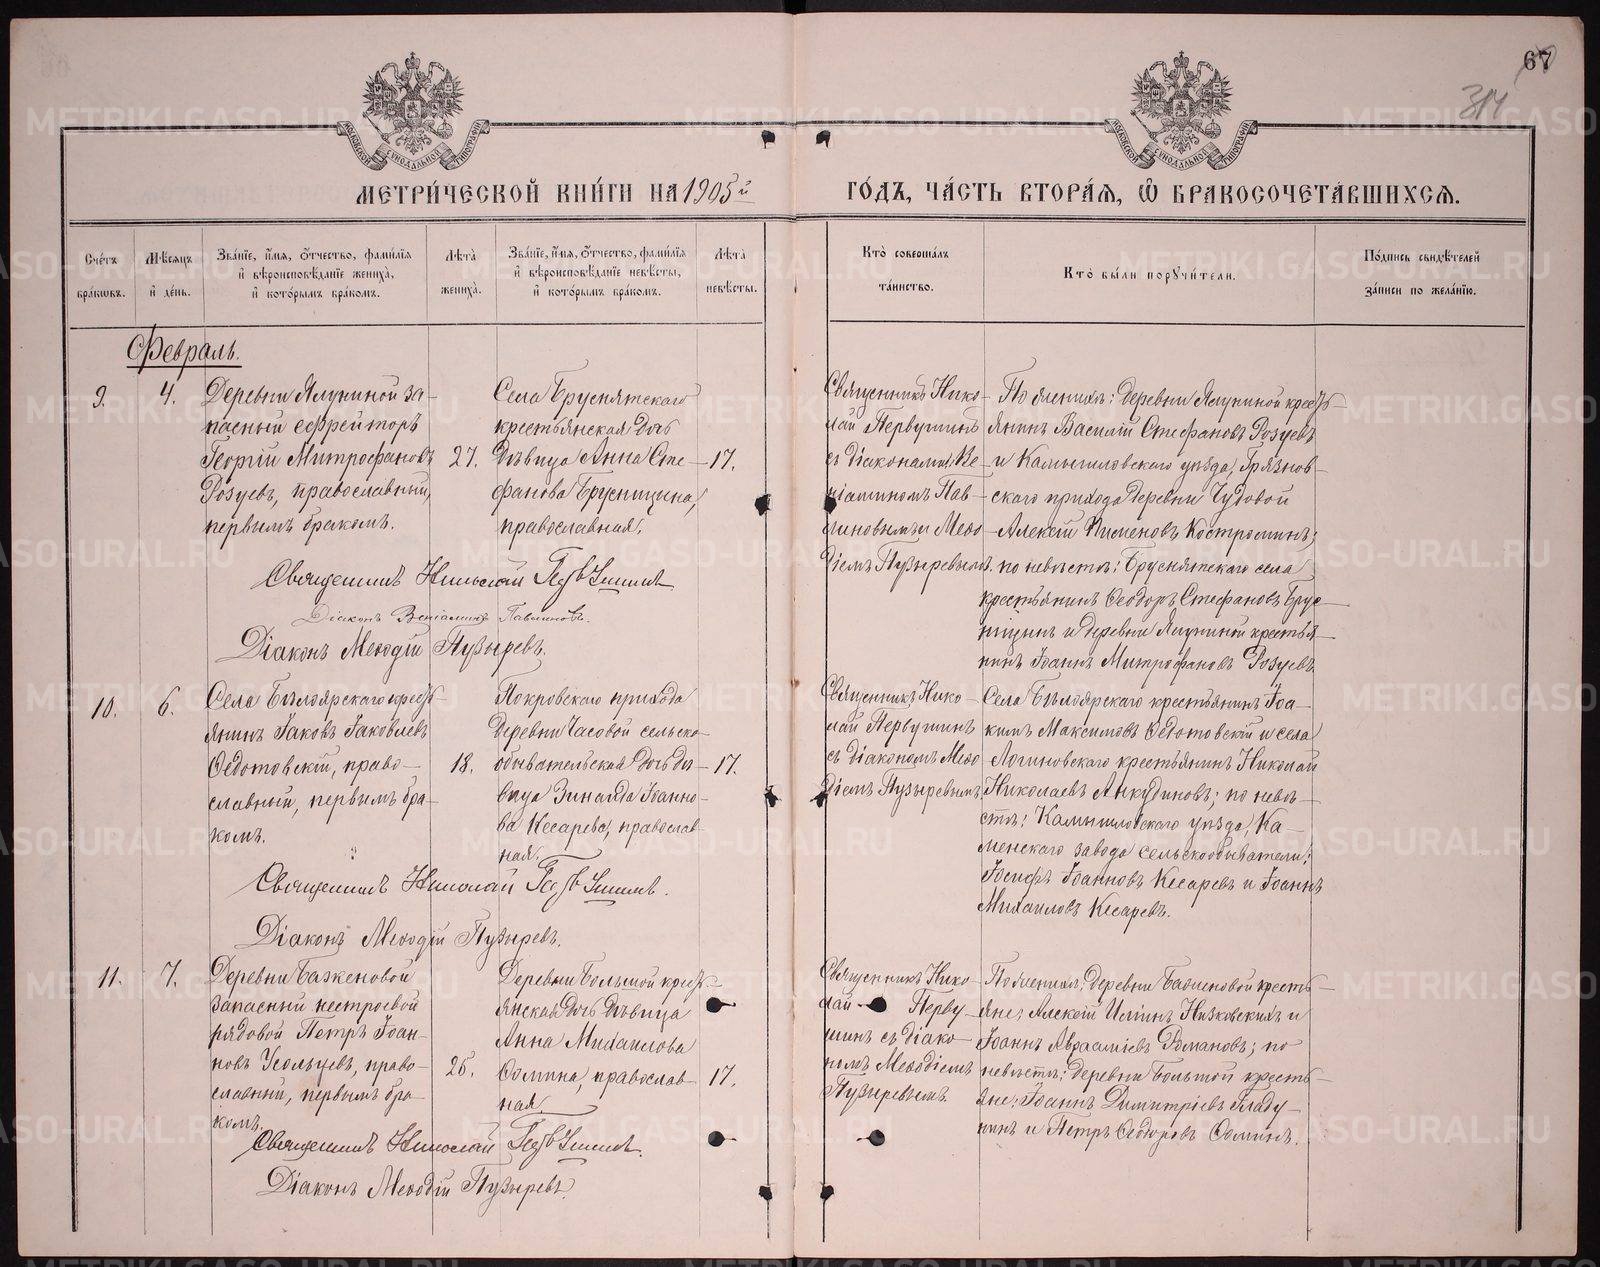 67
314
МОСКОВСКОЙ СѴНОДАЛЬНОЙ ТИПОГРАФІИ
МОСКОВСКОЙ СѴНОДАЛЬНОЙ ТИПОГРАФІИ
МЕТРИ́ЧЕСКОЙ КНИ́ГИ НА 1905й
ГО́ДЪ, ЧА́СТЬ ВТОРА́Я, Ѡ҆ БРАКОСОЧЕТА́ВШИХСѦ.
Сче́тъ бра́кωвъ.
Мѣ́сяцъ и҆ де́нь.
Зва́нїе, и҆́мя, ѻ҆́тчество, фами́лїя и҆ вѣроисповѣ́данїе жениха̀, и҆ кото́рымъ бра́комъ.
Лѣ́та жениха̀.
Зва́нїе, и҆́мя, ѻ҆́тчество, фами́лїя и҆ вѣроисповѣ́данїе невѣ́сты, и҆ кото́рымъ бра́комъ.
Лѣ́та невѣ́сты.
Кто̀ соверша́лъ та́инство.
Кто̀ бы́ли порꙋчи́тели.
По́дпись свидѣ́телей за́писи по жела́нїю.
Февраль.
9.
4.
Деревни Ялуниной за-
пасный ефрейторъ
Георгій Митрофановъ
Розуевъ, православный,
первымъ бракомъ.
27.
Села Бруснятскаго
крестьянская дочь
дѣвица Анна Сте-
фанова Брусницина,
православная.
17.
Священникъ Нико-
лай Первушинъ
съ діаконами Ве-
ніаминомъ Пав-
линовымъ и Меѳо-
діемъ Пузыревымъ.
По женихѣ: деревни Ялуниной кресть-
янинъ Василій Стефановъ Розуевъ
и Камышловскаго уѣзда, Грязнов-
скаго прихода деревни Чудовой
Алексій Пименовъ Костроминъ;
по невѣстѣ: Бруснятскаго села
крестьянинъ Ѳеодоръ Стефановъ Брус-
ницинъ и деревни Ялуниной крестья-
нинъ Іоаннъ Митрофановъ Розуевъ
Священникъ Николай Первушинъ
Діаконъ Веніаминъ Павлиновъ.
Діаконъ Меѳодій Пузыревъ.
10.
6.
Села Бѣлоярскаго кресть-
янинъ Іаковъ Іаковлевъ
Ѳедотовскій, право-
славный, первымъ бра-
комъ.
18.
Покровскаго прихода
деревни Часовой сельско-
обывательская дочь дѣ-
вица Зинаида Іоанно-
ва Кесарева, православ-
ная.
17.
Священникъ Нико-
лай Первушинъ
съ діакономъ Меѳо
діемъ Пузыревымъ.
Села Бѣлоярскаго крестьянинъ Іоа-
кимъ Максимовъ Ѳедотовскій и села
Логиновскаго крестьянинъ Николай
Николаевъ Анкудиновъ; по невѣ-
стѣ: Камышловскаго уѣзда, Ка-
менскаго завода сельскообыватели:
Іосифъ Іоанновъ Кесаревъ и Іоаннъ
Михаиловъ Кесаревъ.
Священникъ Николай Первушинъ.
Діаконъ Меѳодій Пузыревъ.
11.
7.
Деревни Баженовой
запасный нестроевой
рядовой Петръ Іоан-
новъ Усольцевъ, право-
славный, первымъ бра-
комъ.
25.
Деревни Большой кресть-
янская дочь дѣвица
Анна Михаилова
Сомина, православ-
ная.
17.
Священникъ Нико-
лай Перву-
шинъ съ діако-
номъ Меѳодіемъ
Пузыревымъ.
По женихѣ: деревни Баженовой кресть-
яне; Алексій Низковскихъ и
Іоаннъ Авраамиевъ Романовъ; по
невѣстѣ: деревни Большой кресть-
яне: Іоаннъ Димитріевъ Гладу-
нинъ и Петръ Ѳеодоровъ Соминъ.
Священникъ Николай Первушинъ.
Діаконъ Меѳодій Пузыревъ.